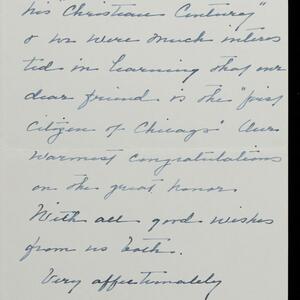 his "Christian Century"
& we were much interes
ted in learning that our
dear friend is the "first
Citizen of Chicago" Our
warmest congratulations
on the great honor.
With all good wishes
from us both.
Very affectionately